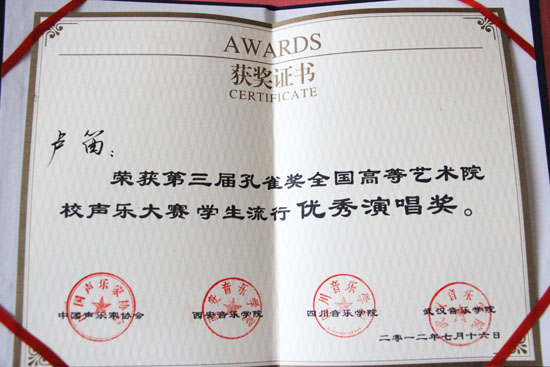 AWARDS
获奖证书
CERTIFICATE
卢笛：
荣获第三届孔雀奖全国高等艺术院
校声乐大赛 学生流行 优秀演唱奖。
中国声乐家协会 西安音乐学院 四川音乐学院 武汉音乐学院
二零一二年七月十六日